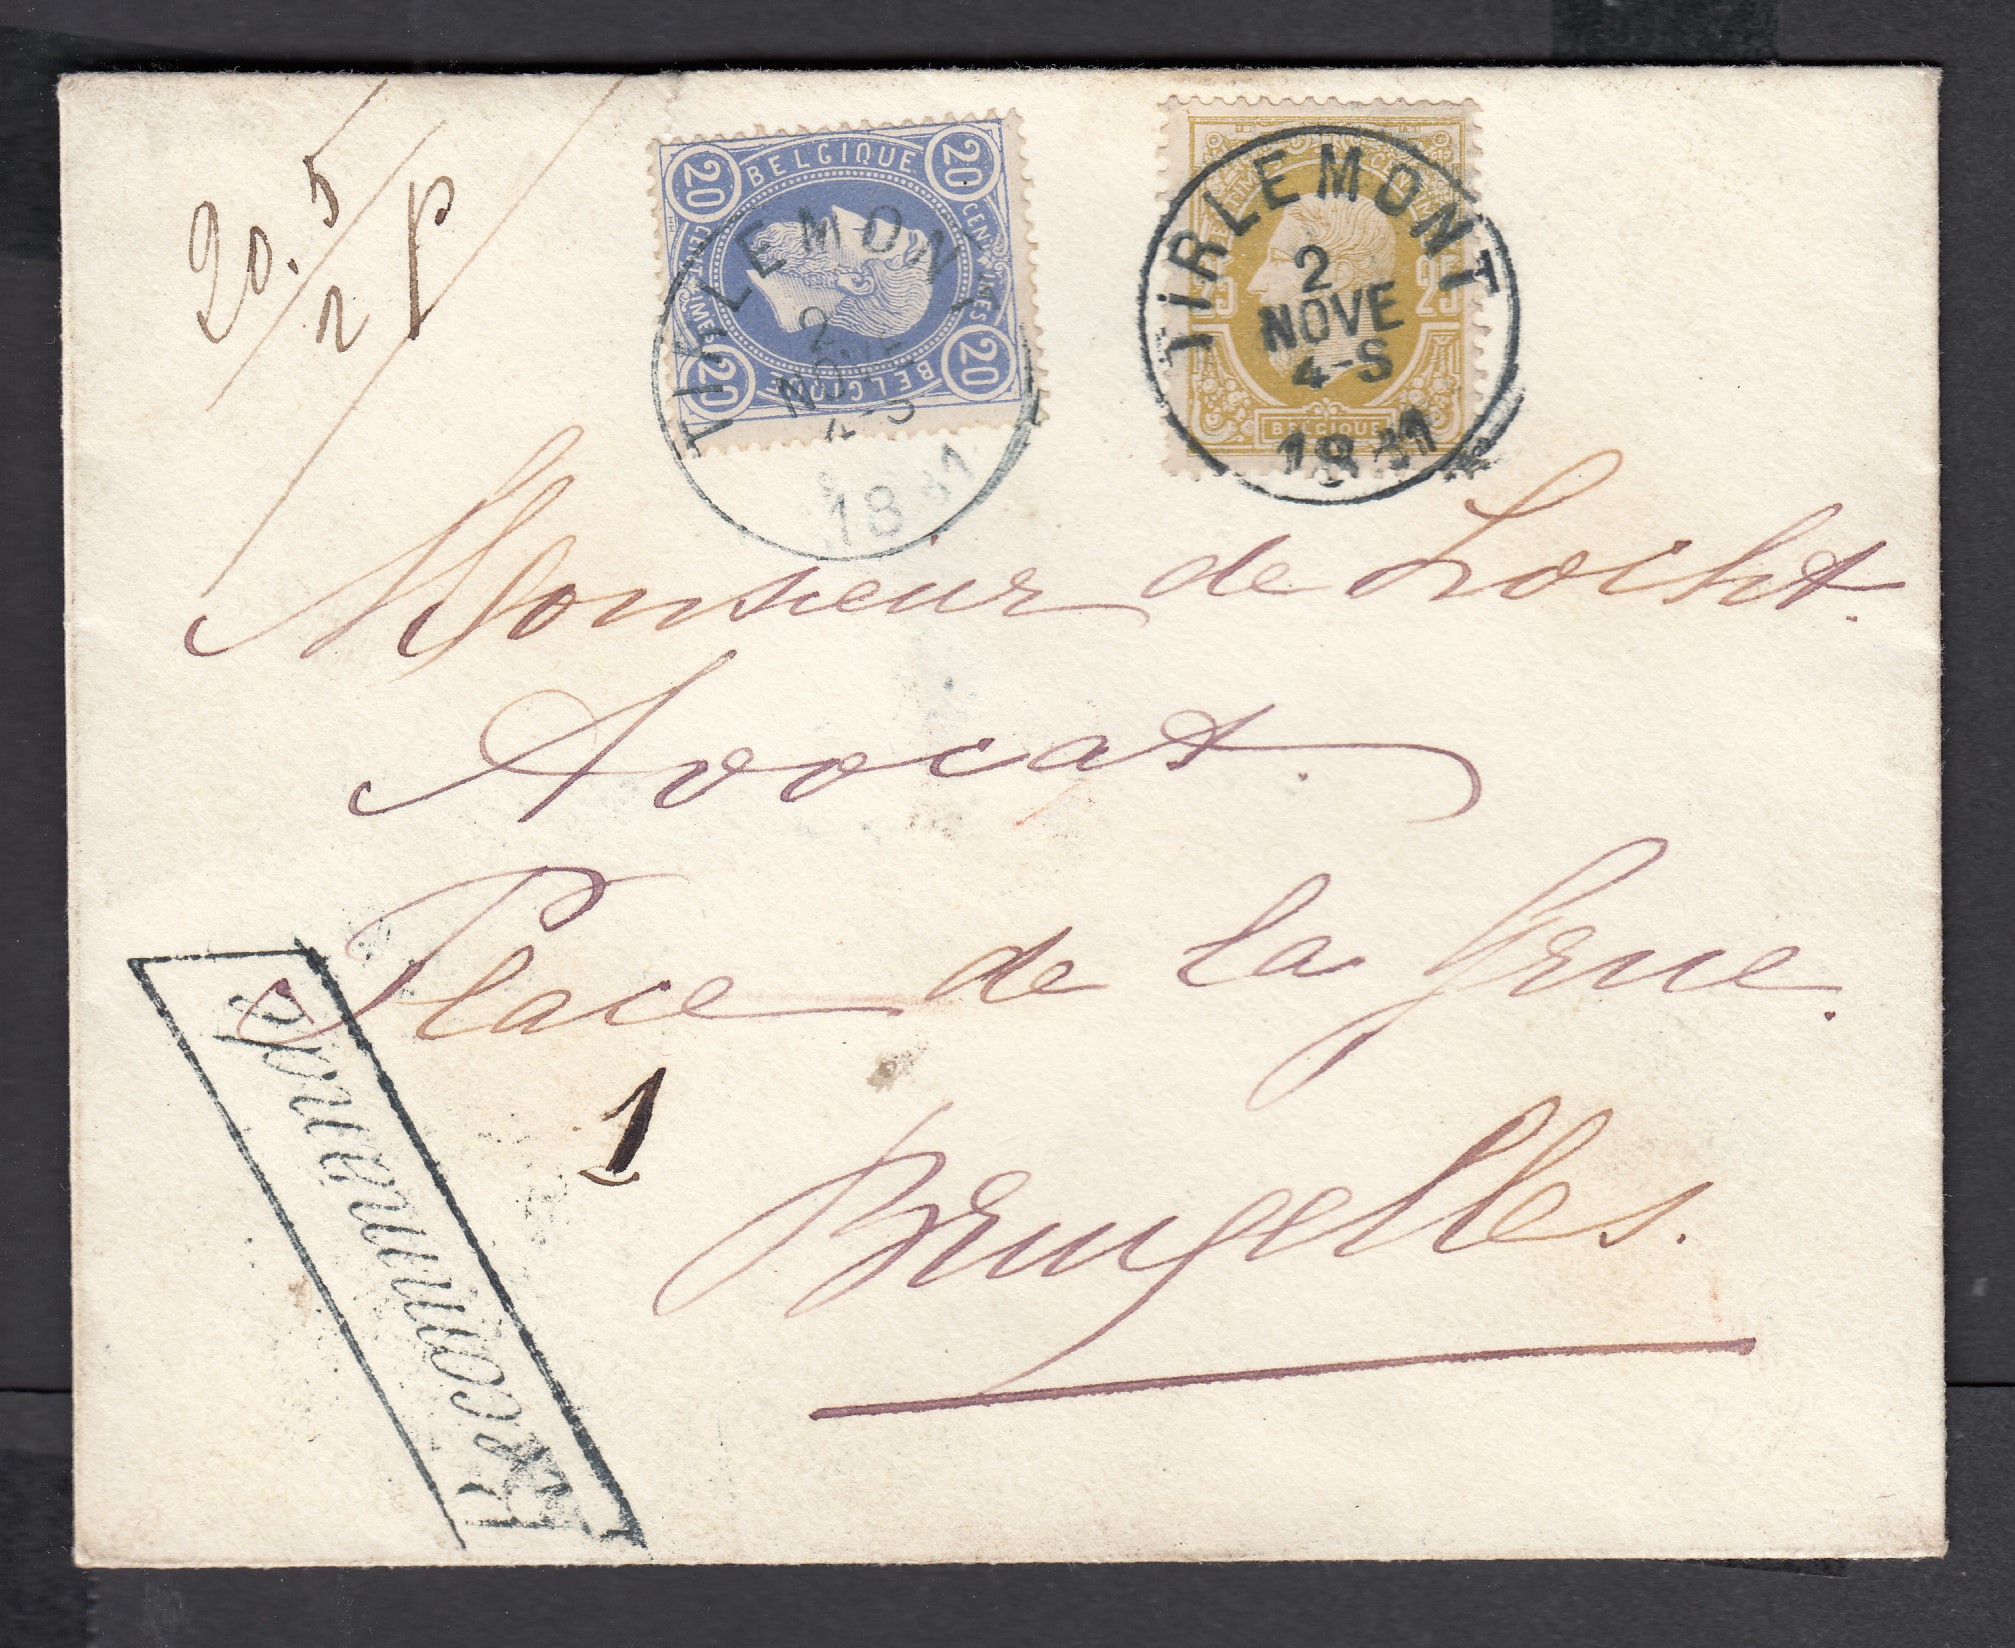 20. 5/2 P
BELGIQUE
20 20 20 20
CENTIMES CENTIMES
BELGIQUE
TIRLEMONT
2
NOVE
4-S
1881
25 25
BELGIQUE
TIRLEMONT
2
NOVE
4-S
1881
Monsieur de
Avocat.
Place de la Grue.
1
Bruxelles.
Recommandé